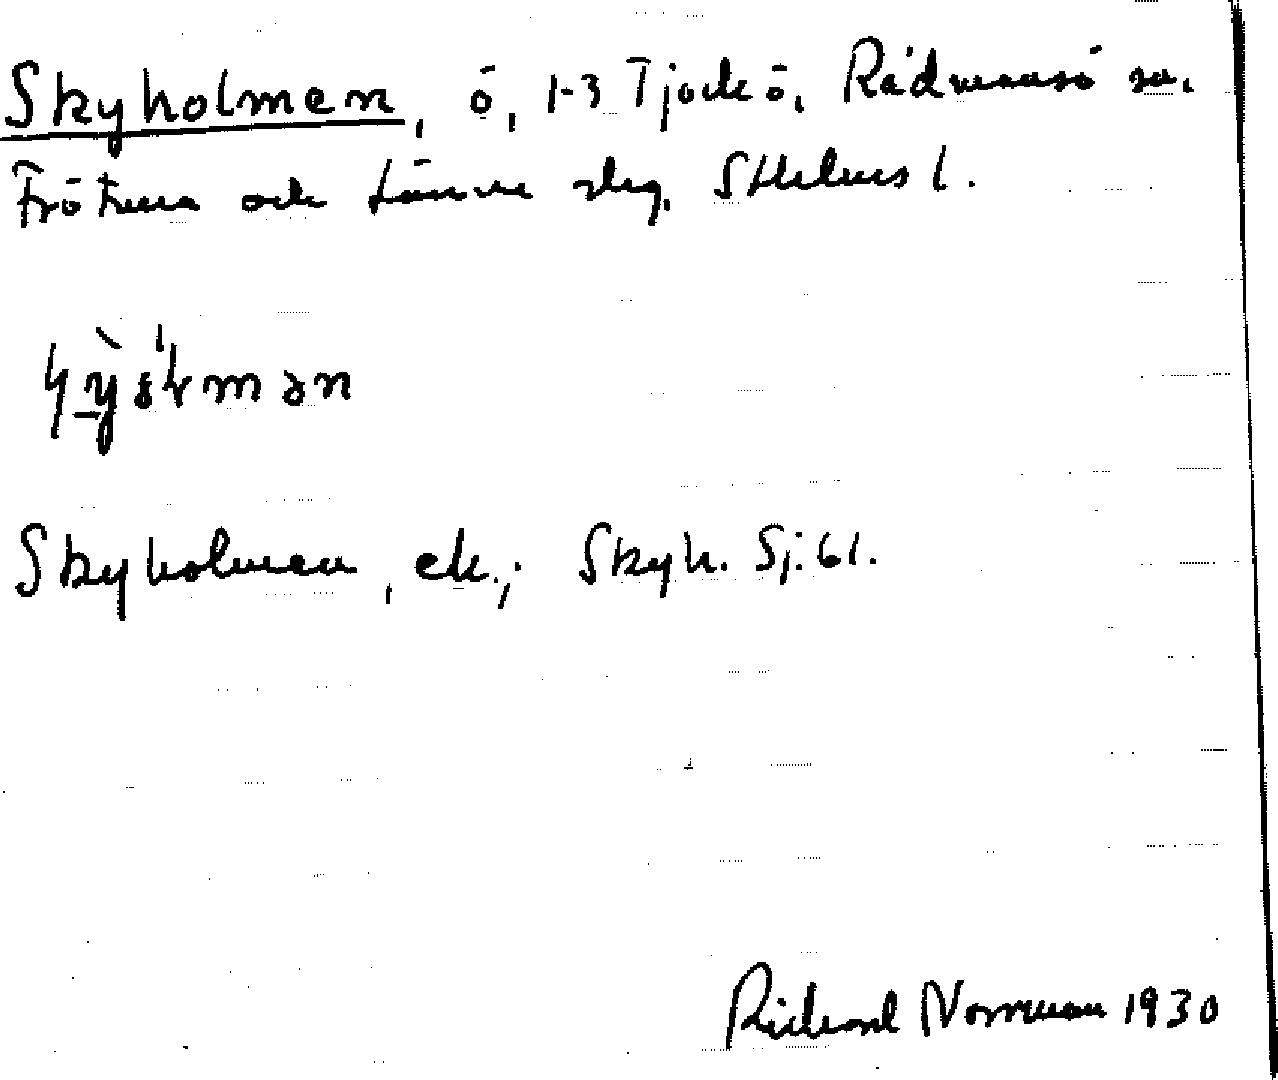 Skyholmen, ö, 1-3 Tjockö, Rådmansö sn.
Frötuna och Länna slg. Sthlms l.
Skyholmen, ek.; Skyh. Sj. 61.
Richard Norrman 1930